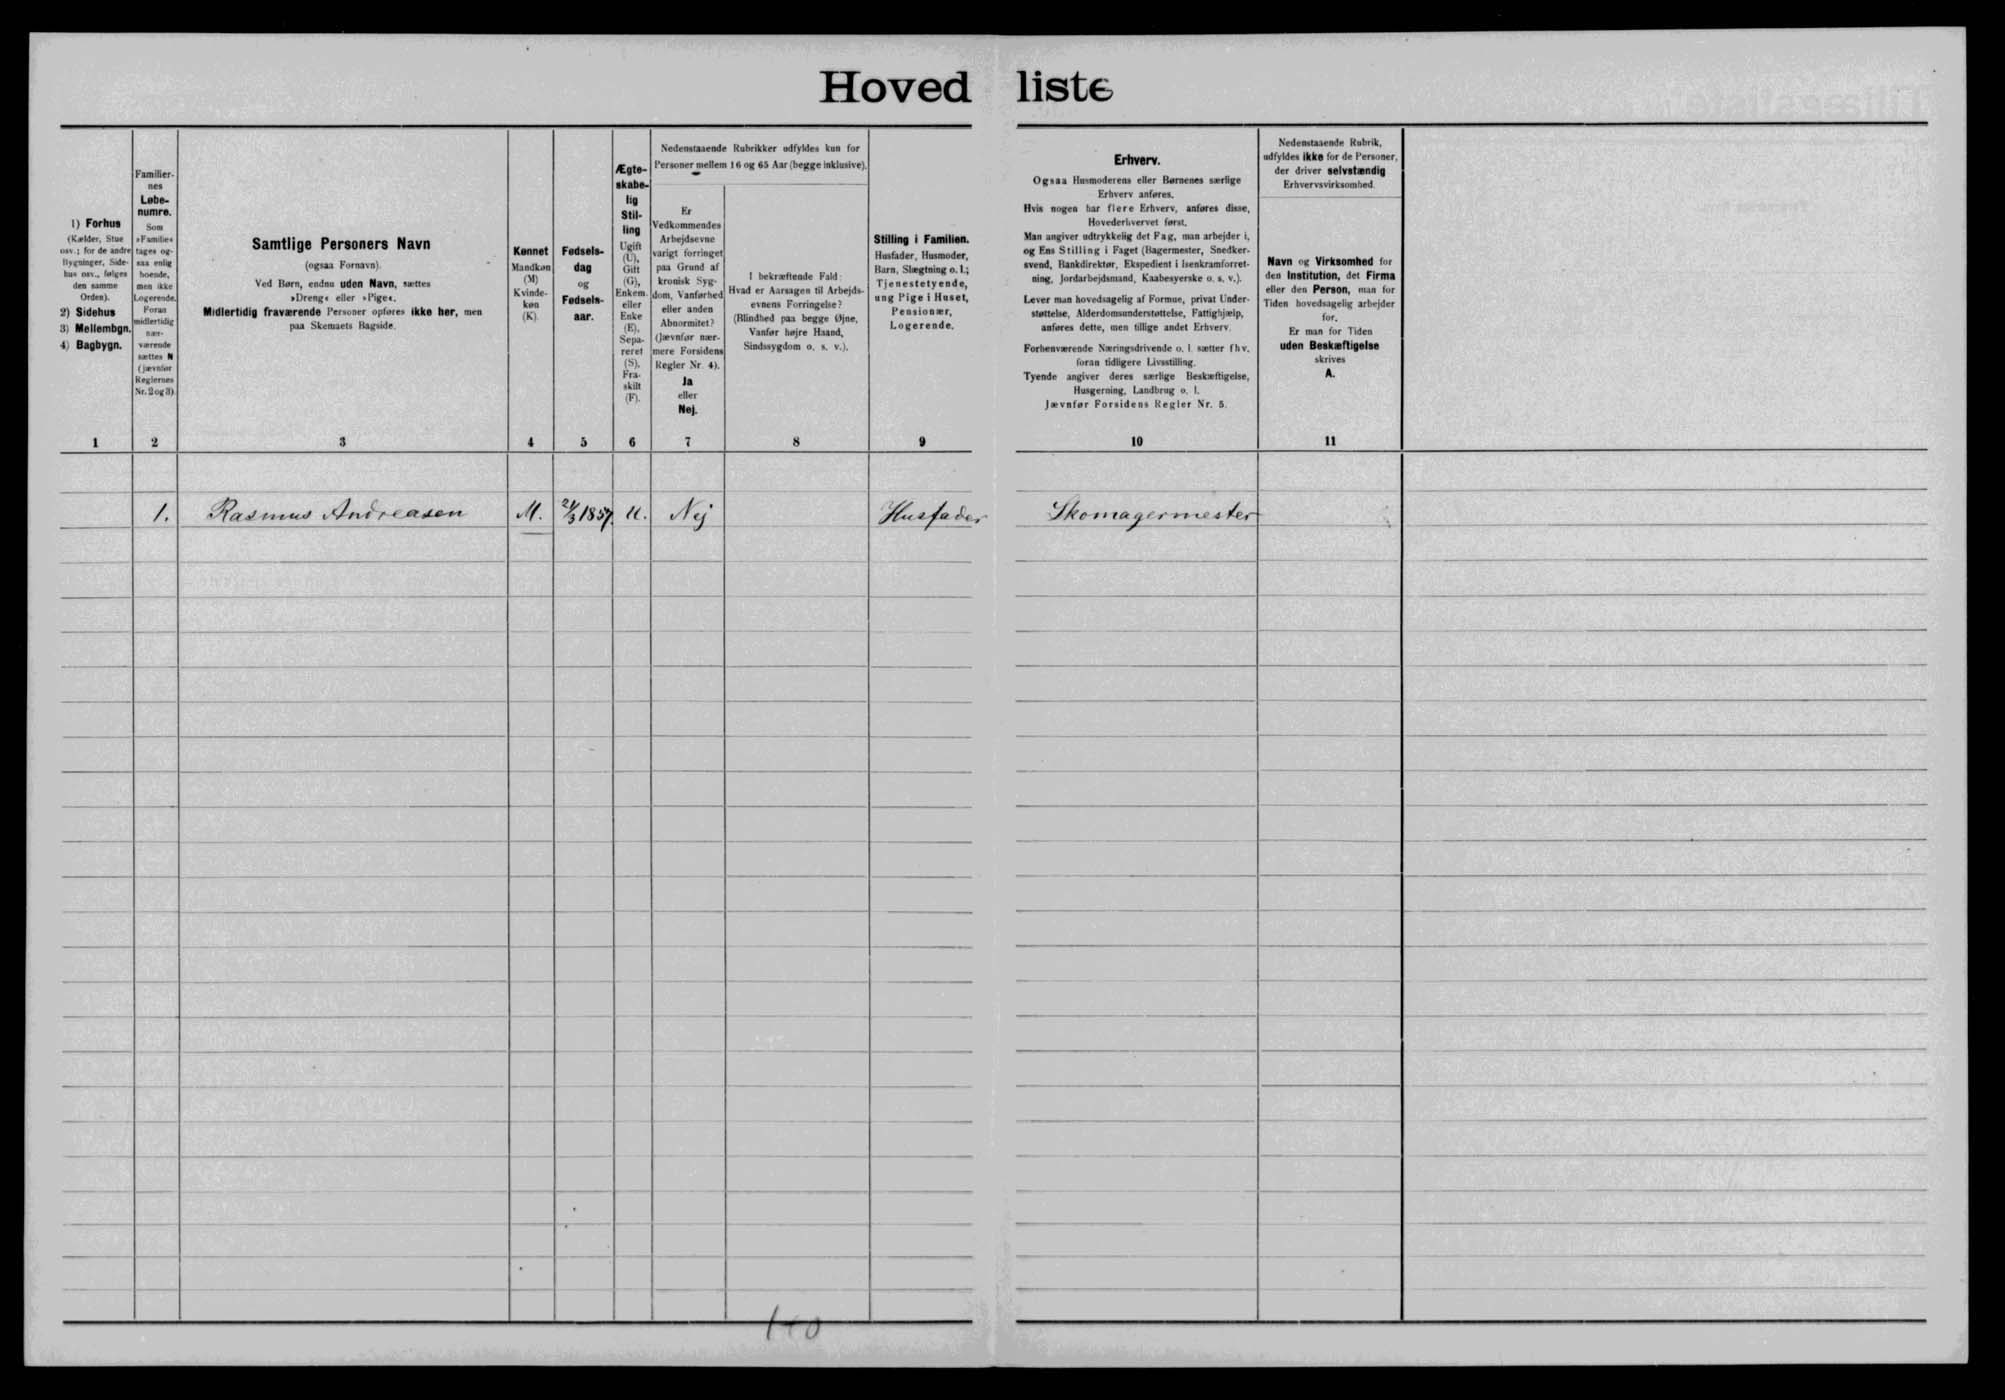 Hovedliste
1) Forhus
(Kælder, Stue
osv.; for de andre
Bygninger, Side-
hus osv., følges
den samme
Orden).
2) Sidehus
3) Mellembgn.
4) Bagbygn.
1
Familier-
nes
Løbe-
numre.
Som
»Familie«
tages og-
saa enlig
boende,
men ikke
Logerende.
Foran
midlertidig
nær-
værende
sættes N
(jævnfør
Reglernes
Nr. 2 og 3)
2
Samtlige Personers Navn
(ogsaa Fornavn).
Ved Børn, endnu uden Navn, sættes
»Dreng« eller »Pige«.
Midlertidig fraværende Personer opføres ikke her, men
paa Skemaets Bagside.
3
Kønnet
Mandkøn
(M)
Kvinde-
køn
(K).
4
Fødsels-
dag
og
Fødsels-
aar.
5
Ægte-
skabe-
lig
Stil-
ling
Ugift
(U),
Gift
(G),
Enkem.
eller
Enke
(E),
Sepa-
reret
(S),
Fra-
skilt
(F).
6
Nedenstaaende Rubrikker udfyldes kun for
Personer mellem 16 og 65 Aar (begge inklusive).
Er
Vedkommendes
Arbejdsevne
varigt forringet
paa Grund af
kronisk Syg-
dom, Vanførhed
eller anden
Abnormitet?
(Jævnfør nær-
mere Forsidens
Regler Nr. 4).
Ja
eller
Nej.
7
I bekræftende Fald:
Hvad er Aarsagen til Arbejds-
evnens Forringelse?
(Blindhed paa begge Øjne,
Vanfør højre Haand,
Sindssygdom o. s. v.).
8
Stilling i Familien.
Husfader, Husmoder,
Barn, Slægtning o. l.;
Tjenestetyende,
ung Pige i Huset,
Pensionær,
Logerende.
9
Erhverv.
Ogsaa Husmoderens eller Børnenes særlige
Erhverv anføres.
Hvis nogen har flere Erhverv, anføres disse,
Hovederhvervet først.
Man angiver udtrykkelig det Fag, man arbejder i,
og Ens Stilling i Faget (Bagermester, Snedker-
svend, Bankdirektør, Ekspedient i Isenkramforret-
ning, Jordarbejdsmand, Kaabesyerske o. s. v.).
Lever man hovedsagelig af Formue, privat Under-
støttelse, Alderdomsunderstøttelse, Fattighjælp,
anføres dette, men tillige andet Erhverv.
Forhenværende Næringsdrivende o. l. sætter fhv.
foran tidligere Livsstilling.
Tyende angiver deres særlige Beskæftigelse,
Husgerning, Landbrug o. l.
Jævnfør Forsidens Regler Nr. 5.
10
Nedenstaaende Rubrik,
udfyldes ikke for de Personer,
der driver selvstændig
Erhvervsvirksomhed.
Navn og Virksomhed for
den Institution, det Firma
eller den Person, man for
Tiden hovedsagelig arbejder
for.
Er man for Tiden
uden Beskæftigelse
skrives
A.
11
1. Rasmus Andreasen M. 24/3 1857. U. Nej Husfader Skomagermester